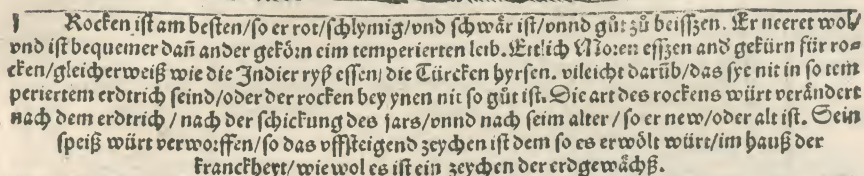 Rocken ist am besten/so er rot/schlymig/vnd schwår ist/vnnd gůt zů beisszen. Er neeret wol/
vnd ist bequemer dañ ander gekörn eim temperierten leib. Ettlich Moren esszen and gekürn für ro=
cken/gleicherweiß wie die Indier ryß essen/die Türcken hyrsen. vileicht darüb/das sye nit in so tem
periertem erdtrich seind/oder der rocken bey ynen nit so gůt ist. Die art des rockens würt verändert
nach dem erdtrich/nach der schickung des jars/vnnd nach seim alter/so er new/oder alt ist. Sein
speiß würt verworffen/so das vffsteigend zeychen ist dem so es erwölt würt/im hauß der
kranckheyt/wiewol es ist ein zeychen der erdgewächß.